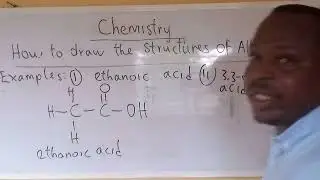 Chemistry
How to draw the structures of Al
Examples: (i) ethanoic acid (ii) 3,3-
acid
H O
H-C-C-OH
H
ethanoic acid